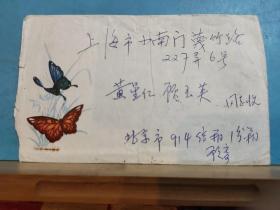 上海市小南门蔓竹路
227弄6号
黄星仁 顾玉英 同志收
北京市914信箱15分箱